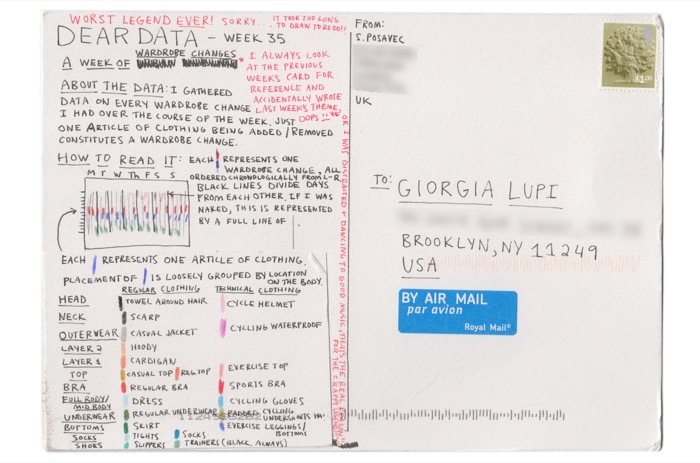 WORST LEGEND EVER! SORRY... IT TOOK TOO LONG
TO DRAW TO REDO!!
DEAR DATA - WEEK 35
A WEEK OF WARDROBE CHANGES
* I ALWAYS LOOK
AT THE PREVIOUS
WEEK'S CARD FOR
REFERENCE AND
ACCIDENTALLY WROTE
LAST WEEK'S THEME,
OOPS!!
ABOUT THE DATA: I GATHERED
DATA ON EVERY WARDROBE CHANGE
I HAD OVER THE COURSE OF THE WEEK. JUST
ONE ARTICLE OF CLOTHING BEING ADDED/REMOVED
CONSTITUTES A WARDROBE CHANGE.
HOW TO READ IT: EACH REPRESENTS ONE
WARDROBE CHANGE, ALL
ORDERED CHRONOLOGICALLY FROM L-R.
BLACK LINES DIVIDE DAYS
FROM EACH OTHER. IF I WAS
NAKED, THIS IS REPRESENTED
BY A FULL LINE OF
M T W TH F S S
EACH REPRESENTS ONE ARTICLE OF CLOTHING.
PLACEMENT OF IS LOOSELY GROUPED BY LOCATION
ON THE BODY.
REGULAR CLOTHING TECHNICAL CLOTHING
HEAD TOWEL AROUND HAIR CYCLE HELMET
NECK SCARF
OUTERWEAR CASUAL JACKET CYCLING WATERPROOF
LAYER 2 HOODY
LAYER 1 CARDIGAN
TOP CASUAL TOP REG. TOP EXERCISE TOP
BRA REGULAR BRA SPORTS BRA
FULL BODY/
MID BODY DRESS CYCLING GLOVES
UNDERWEAR REGULAR UNDERWEAR PADDED CYCLING
UNDERSHORTS
BOTTOMS SKIRT EXERCISE LEGGINGS/
BOTTOMS
SOCKS TIGHTS SOCKS
SHOES SLIPPERS TRAINERS (BLACK, ALWAYS)
OR I WAS DISTRACTED + DANCING TO GOOD MUSIC, THAT'S THE REAL REASON
FOR THE CRAPPY LEGEND
FROM:
S. POSAVEC
UK
£1.00
TO: GIORGIA LUPI
BROOKLYN, NY 11249
USA
BY AIR MAIL
par avion
Royal Mail®